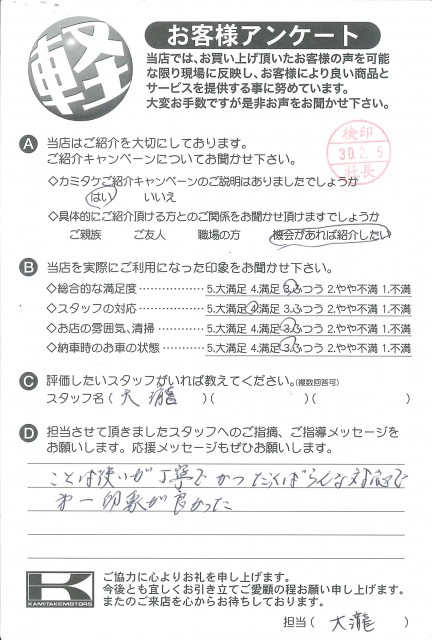 軽
お客様アンケート
当店では、お買い上げ頂いたお客様の声を可能
な限り現場に反映し、お客様により良い商品と
サービスを提供する事に努めています。
大変お手数ですが是非お声をお聞かせ下さい。
検印
30.2.5
社長
A 当店はご紹介を大切にしております。
ご紹介キャンペーンについてお聞かせ下さい。
◇カミタケご紹介キャンペーンのご説明はありましたでしょうか
はい いいえ
◇具体的にご紹介頂ける方とのご関係をお聞かせ頂けますでしょうか
ご親族 ご友人 職場の方 機会があれば紹介したい
B 当店を実際にご利用になった印象をお聞かせ下さい。
◇総合的な満足度 5.大満足 4.満足 3.ふつう 2.やや不満 1.不満
◇スタッフの対応 5.大満足 4.満足 3.ふつう 2.やや不満 1.不満
◇お店の雰囲気、清掃 5.大満足 4.満足 3.ふつう 2.やや不満 1.不満
◇納車時のお車の状態 5.大満足 4.満足 3.ふつう 2.やや不満 1.不満
C 評価したいスタッフがいれば教えてください。(複数回答可)
スタッフ名(大瀧)( )( )
D 担当させて頂きましたスタッフへのご指摘、ご指導メッセージを
お願いします。応援メッセージもぜひお願いします。
ことば使いが丁寧でかつたんぱらんな対応で
第一印象が良かった
K
KAMITAKEMOTORS
ご協力に心よりお礼を申し上げます。
今後とも宜しくお引き立てご愛顧の程お願い申し上げます。
またのご来店を心からお待ちしております。
担当(大瀧)